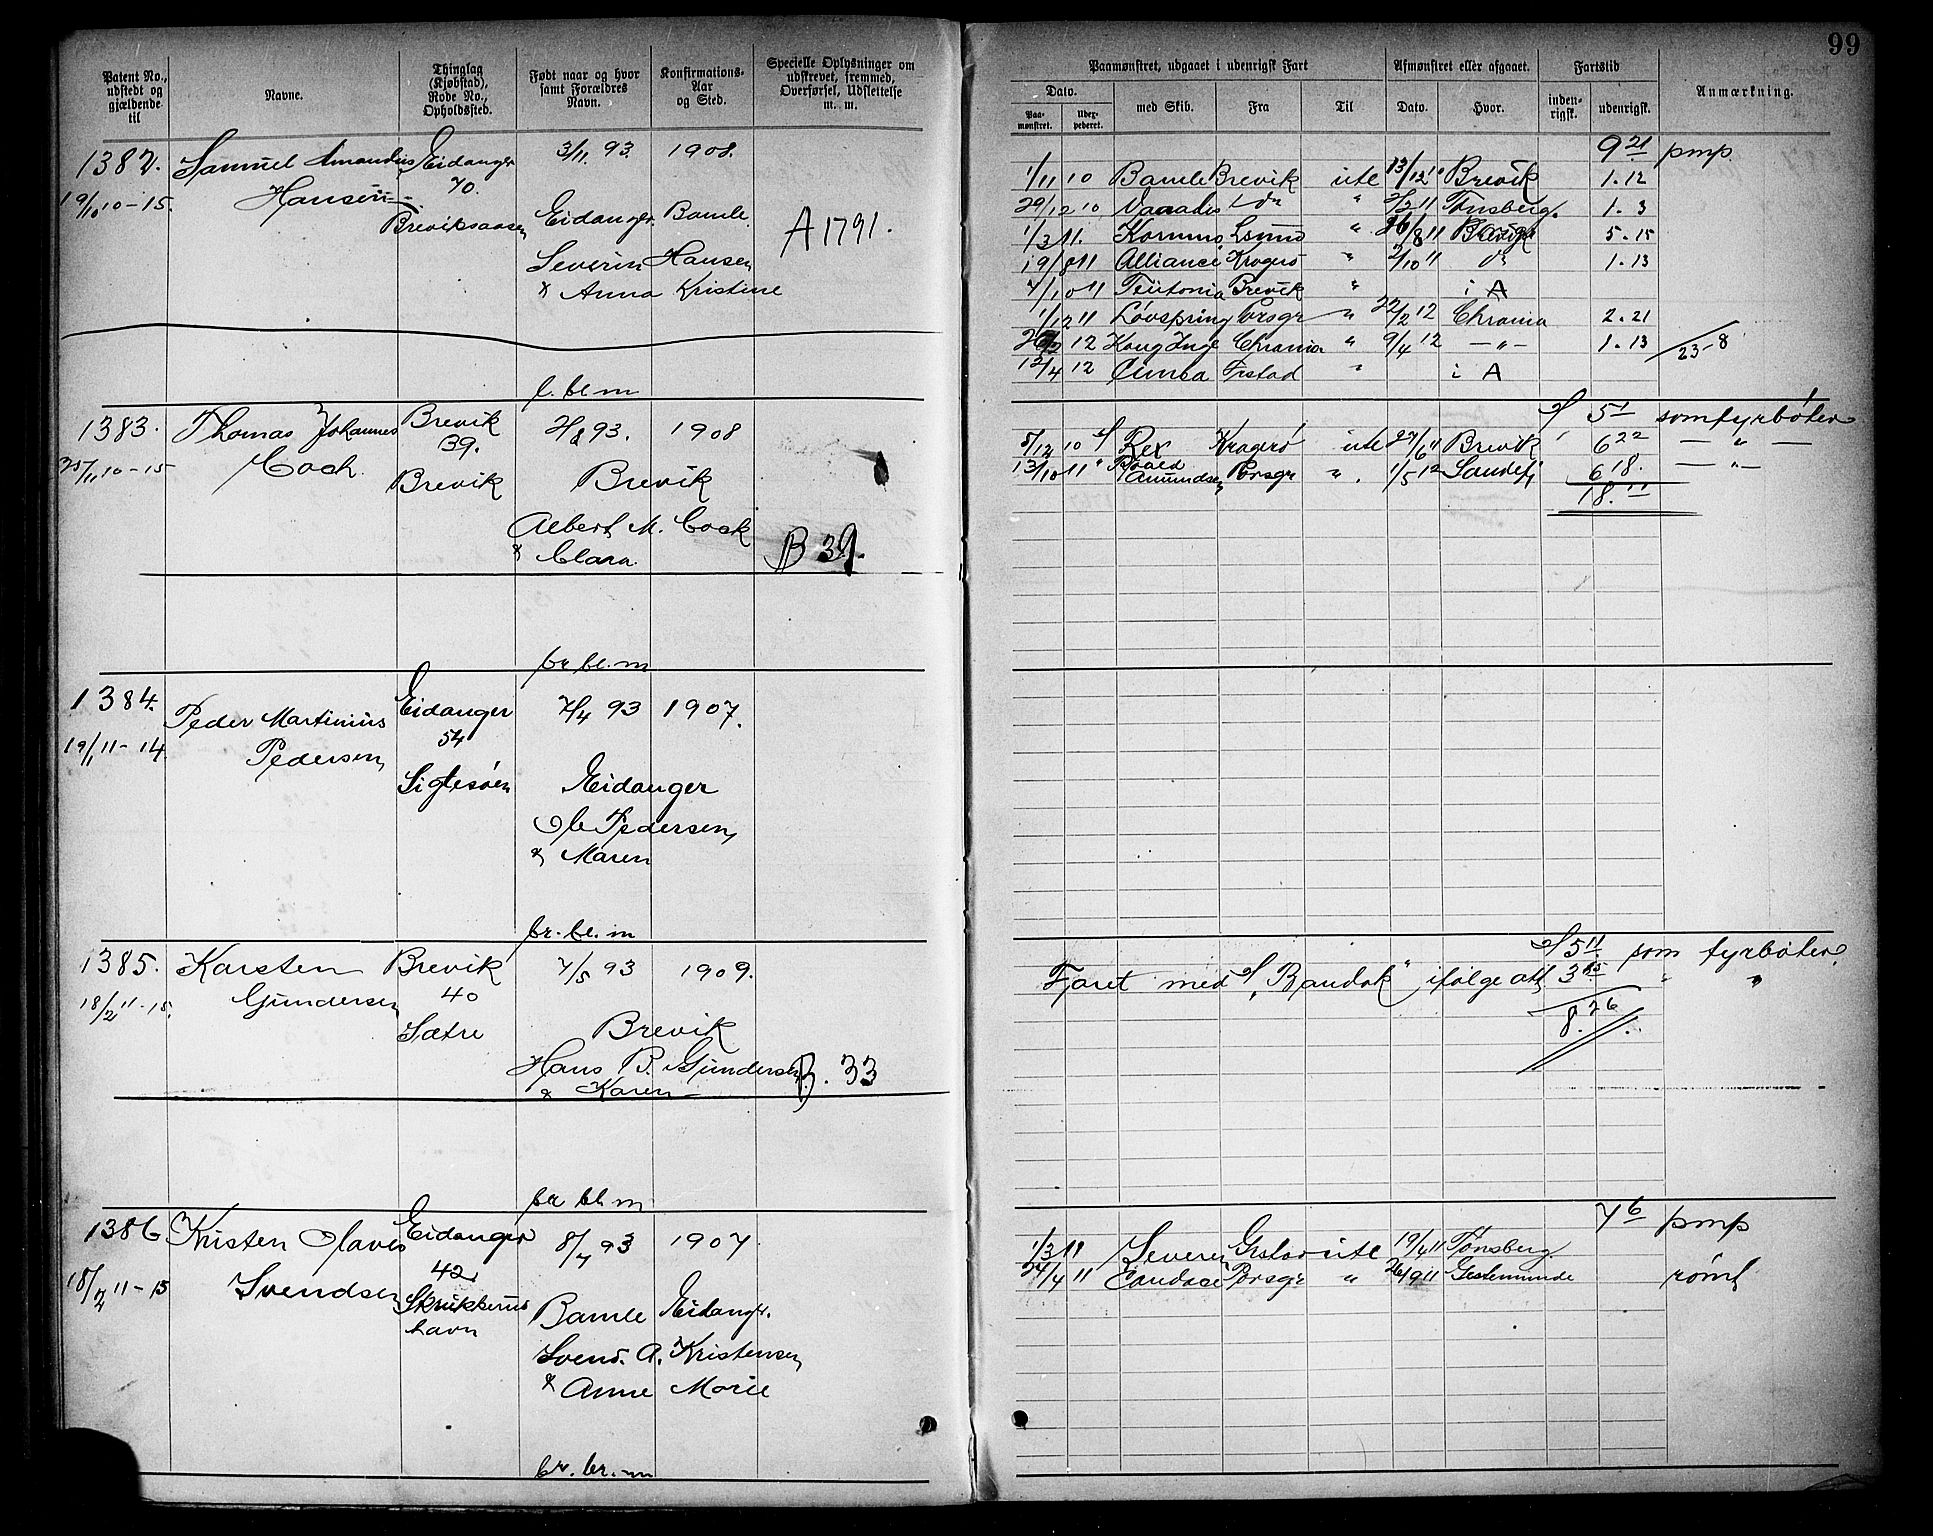 99
Patent No., udstedt og gjældende til
Navne.
Thinglag (Kjøbstad), Rode No., Opholdssted.
Født naar og hvor samt Forældres Navn.
Konfirmations-Aar og Sted.
Specielle Oplysninger om udskrevet, fremmed, Overførsel, Udslettelse m. m.
Paamønstret, udgaaet i udenrigsk Fart
Afmønstret eller afgaaet.
Fartstid
Anmærkning.
Dato.
med Skib.
Fra
Til
Dato.
Hvor.
inden-rigsk.
udenrigsk.
Paa-mønstret.
1382. Samuel Amandus Eidanger 3/11. 93. 1908.
Hansen 70.
19/10 10-15.
Breviksaasen Eidanger Bamle A 1791.
Severin Hansen
& Anna Kristine
l. bl m
9 21 pmp
1/11 10 Bamle Brevik ute 13/12 " Brevik 1.12
29/12 10 Varadis do " 2/2 11 Tønsberg. 1.3
1/3 11. Kormo " /8 11 5.15
19/8 11 Alliance Kragerø " 2/10 11 do 1.13
7/10 11 Teutonia Brevik " i A
1/12 11 Løvspring Porsgr " 22/2 12 Chrania 2.21
12 Kong Inge Chrania " 9/4 12 — " — 1.13 23-8
12/4 12 Cimra Frstad " i A
1383. Thomas Johannes Brevik 2/8 93. 1908
Cock 39.
25/11 10-15 Brevik Brevik
Albert M. Cock
& Clara B 39.
br bl. m
S/ 5 1 som fyrbøter
5/12 10 S/ Rex Kragerø ute 27/6 11 Brevik 6 22 — " —
13/10 11 " Roald Amundsen Porsgr " 1/5 12 Sandefj 6 18. — " —
18. 11
1384. Peder Martinius Eidanger 7/4 93 1907.
Pedersen 54
19/1 11-14.
Sigtesøen Eidanger
Ole Pedersen
& Maren
br. bl. m
1385. Karsten Brevik 7/5 93 1909.
Gundersen 40
18/2 11-15.
Sætre Brevik
Hans P. Gundersen B. 33
& Karen
br bl m
S/ 5 11 som fyrbøter.
Faret med S/ „Randok" ifølge att 3 15 " "
8. 26
1386 Kristen Olaves Eidanger 8/7 93 1907.
Svendsen 42
18/2 11-15 Skrukkerushavn
Bamle Eidangr.
Svend. A. Kristensen
& Anne Marie
br. br. m
7 6 pmp
1/3 11 Severin Grstad ute 19/4 11 Tønsberg
24/4 11 Candace Porsgr " 26/9 11 Gestemünde rømt